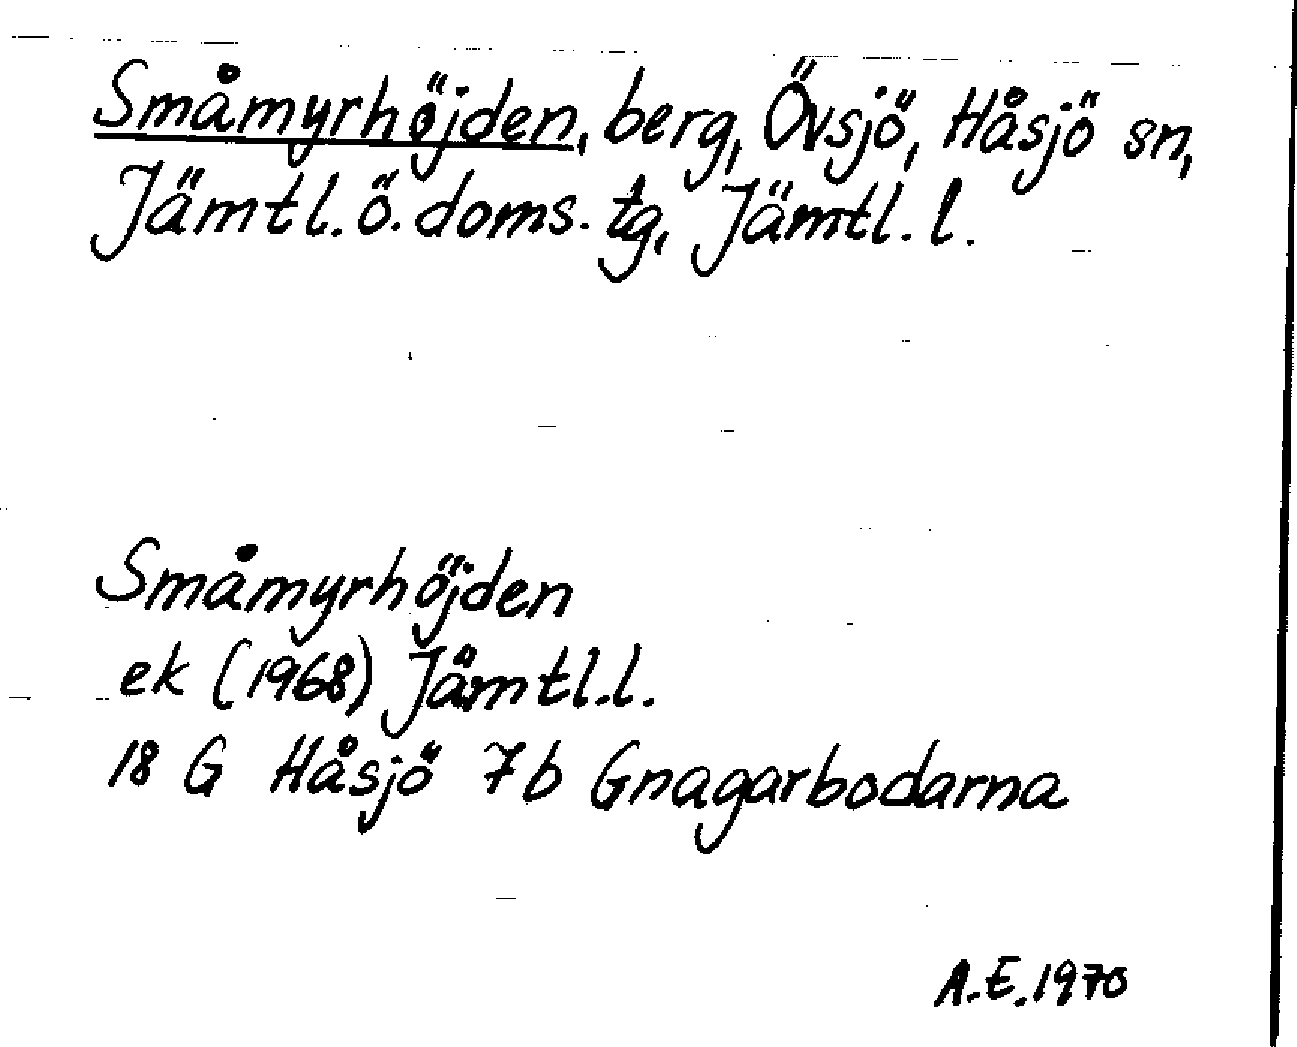 Småmyrhöjden, berg, Övsjö, Håsjö sn,
Jämtl. ö. doms. tg, Jämtl. l.
Småmyrhöjden
ek (1968) Jämtl. l.
18 G Håsjö 7b Gnagarbodarna
A.E. 1970